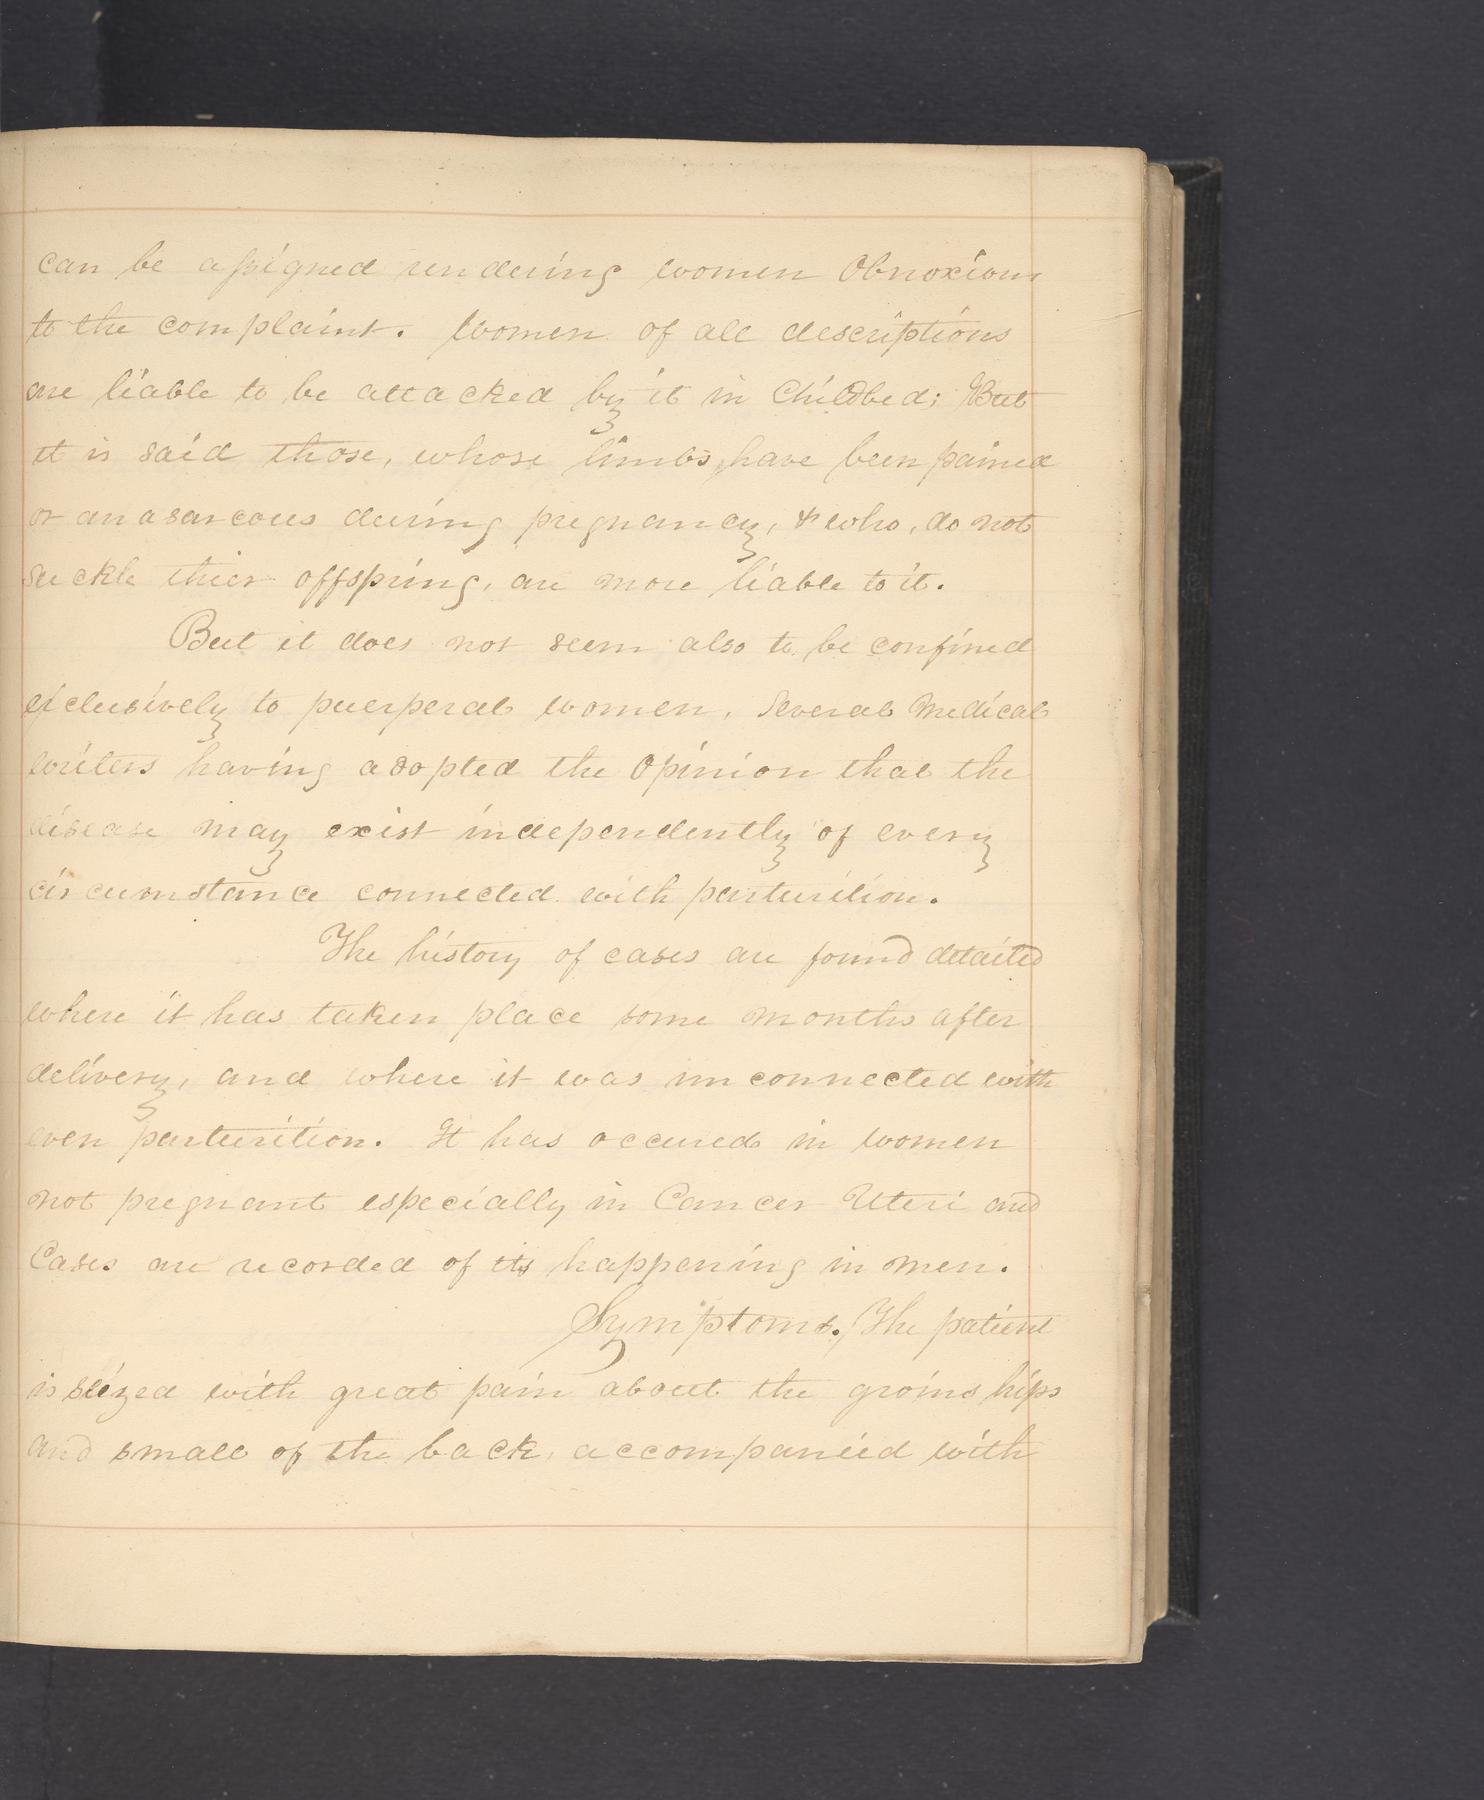 can be assigned rendering women Obnoxious
to the complaint. Women of all descriptions
are liable to be attacked by it in Childbed; But
it is said those, whose limbs, have been pained
or anasarcous during pregnancy, & who, do not
suckle thier offspring, are more liable to it.
But it does not seem also to be confined
exclusively to puerperal women, Several Medical
writers having adopted the Opinion that the
disease may exist independently of every
circumstance connected with parturition.
The history of cases are found detailed
where it has taken place some months after
delivery, and where it was unconnected with
even parturition. It has occured in women
not pregnant especially in Cancer Uteri and
Cases are recorded of its happening in men.
Symptoms. The patient
is siezed with great pain about the groins hips
and small of the back, accompanied with